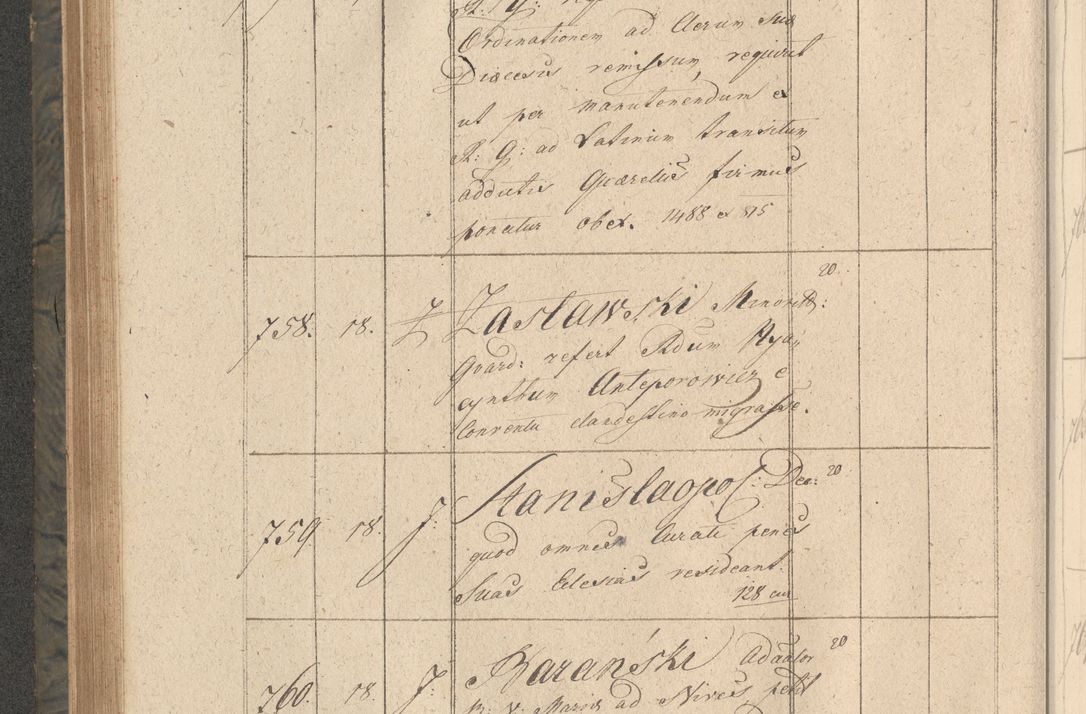 Ordinationem ad Clerum Suæ
Diœcesis remissum, requirit
ut per manutenendum ex
R: G: ad Latinum transitum
adductis Quærelis firmus
ponatur obex. 1488 ex 815
20
758. 18. Z Zasławski Minorit:
Guard: refert Rdum Hya
cynthum Anteporowicz e
Conventu clandestino migrasse.
759 18. J: Stanislaopol: Dec: 20
quod omnes Curati penes
Suas Eclesias resideant.
128 cur
760. 18. J: Barański Adaator 20
B. V. Mariæ ad Nives petit